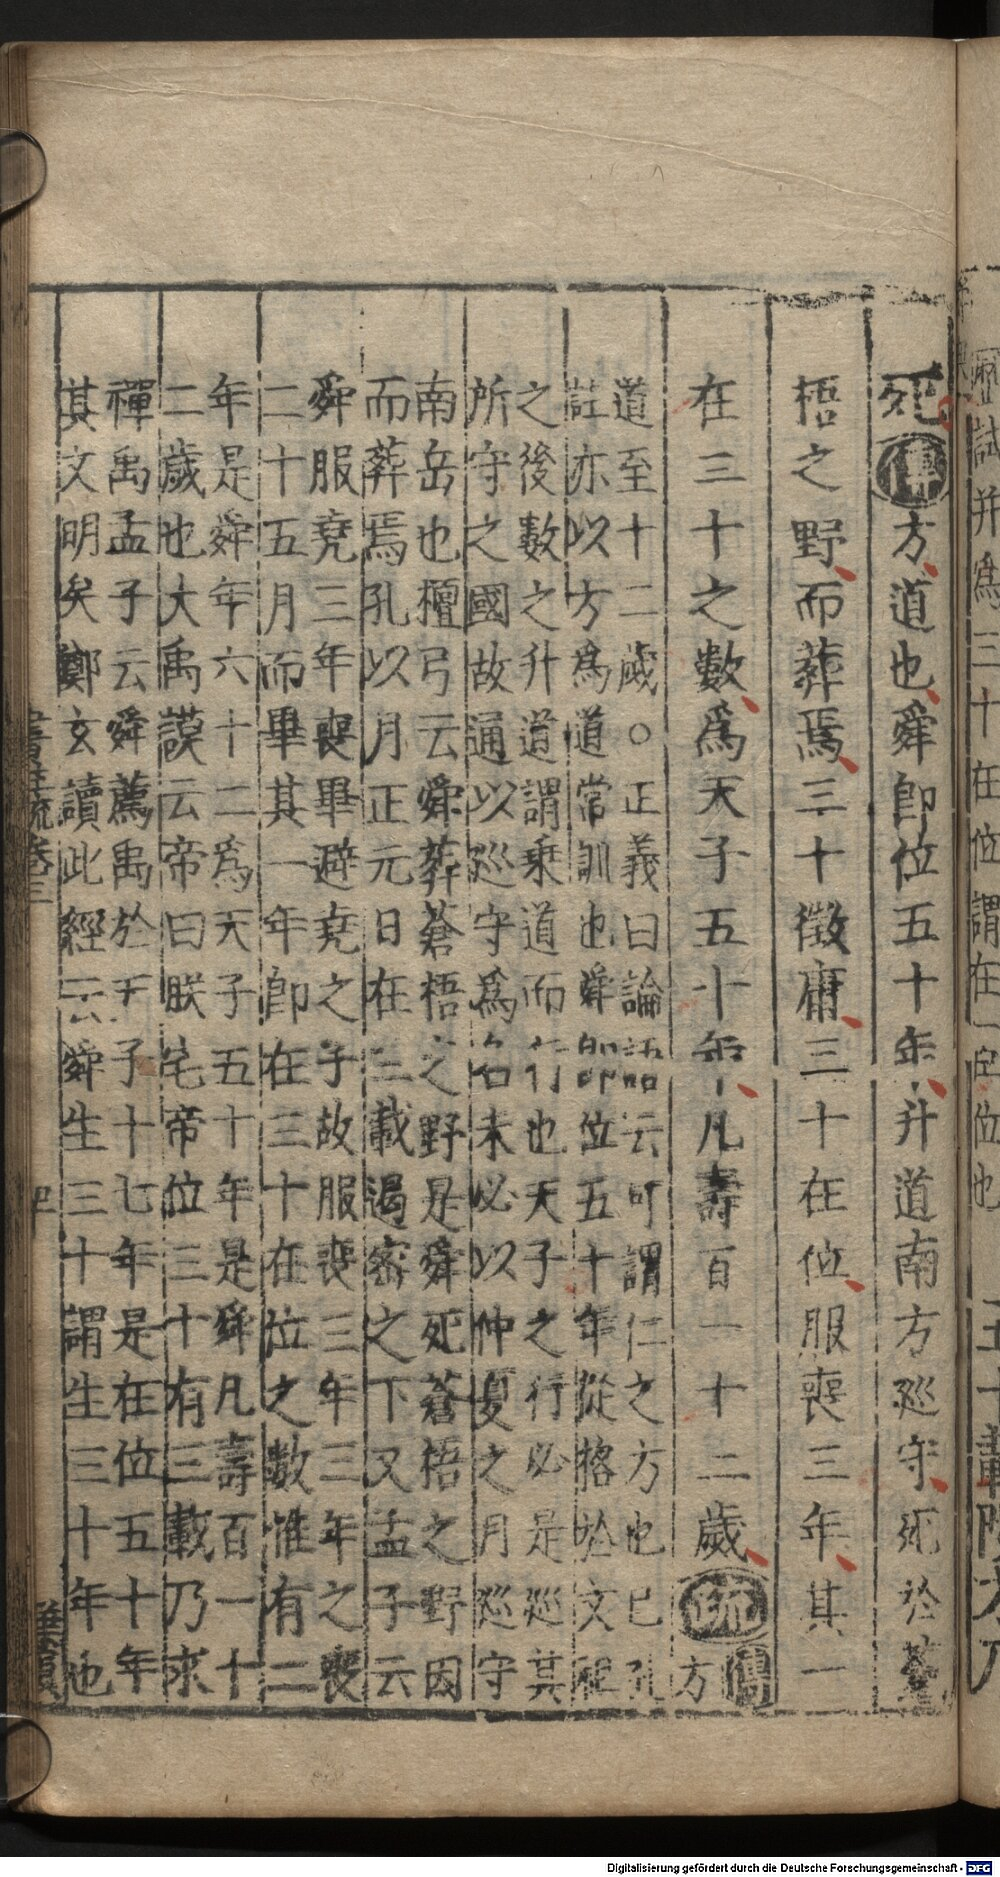 歷試并爲三十在位謂在一官位也 五十載陟方乃
死傳方道也舜卽位五十年升道南方巡守死於蒼
梧之野而葬焉三十徵庸三十在位服喪三年其一
在三十之數爲天子五十年凡壽百一十二歲疏傳方
道至十二歲○正義曰論語云可謂仁之方也已孔
註亦以方爲道常訓也舜卽位五十年從格於文祖
之後數之升道謂乘道而行也天子之行必是巡其
所守之國故通以巡守爲名未必以仲夏之月巡守
南岳也檀弓云舜葬蒼梧之野是舜死蒼梧之野因
而葬焉孔以月正元日在三載遏密之下又孟子云
舜服堯三年喪畢避堯之子故服喪三年三年之喪
二十五月而畢其一年卽在三十在位之數惟有二
年是舜年六十二爲天子五十年是舜凡壽百一十
二歲也大禹謨云帝曰朕宅帝位三十有三載乃求
禪禹孟子云舜薦禹於天子十七年是在位五十年
其文明矣鄭玄讀此經云舜生三十謂生三十年也
書註疏卷三
Digitalisierung gefördert durch die Deutsche Forschungsgemeinschaft - DFG